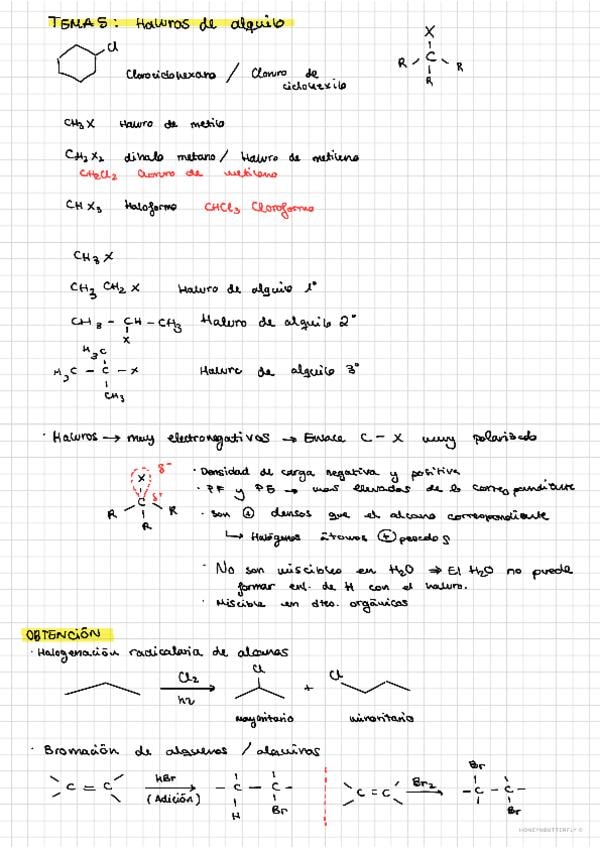 TEMA 5: Haluros de alquilo
Cl
Clorociclohexano / Cloruro de
ciclohexilo
X
R C R
R
CH3X Haluro de metilo
CH2X2 dihalo metano / Haluro de metileno
CH2Cl2 Cloruro de metileno
CHX3 Haloformo CHCl3 Cloroformo
CH3X
CH3 CH2 X Haluro de alquilo 1º
CH3 - CH - CH3 Haluro de alquilo 2º
X
H3C
H3C - C - X Haluro de alquilo 3º
CH3
· Haluros → muy electronegativos → Enlace C - X muy polarizado
X δ-
C δ+
R R
R
· Densidad de carga negativa y positiva
· PF y PE → mas elevados de lo correspondiente
· son ⊕ densos que el alcano correspondiente
↳ Halógenos átomos ⊕ pesados
· No son miscibles en H2O ⇒ El H2O no puede
formar enl. de H con el haluro.
· Miscible en dtes. orgánicos
OBTENCIÓN
· Halogenación radicalaria de alcanos
Cl2
hν
Cl + Cl
mayoritario minoritario
· Bromación de alquenos / alquinos
C = C HBr (Adición) - C - C -
H Br
C = C Br2 - C - C -
Br Br
HONEYNBUTTERFLY ©